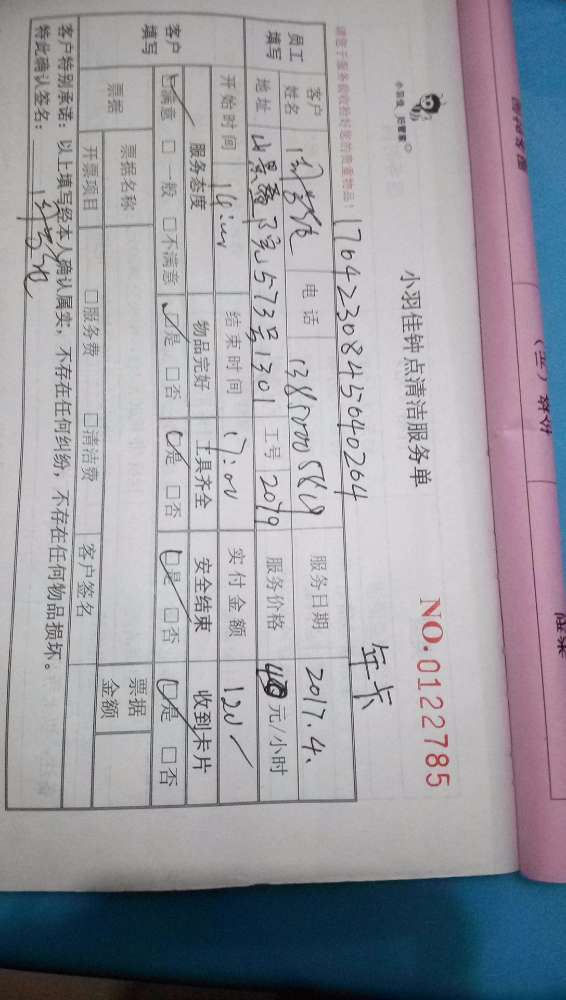 小羽佳 好管家
小羽佳钟点清洁服务单
NO.0122785
请您于服务前收拾好您的贵重物品！
1704230845640264
年卡
员工填写
客户姓名
电话
服务日期 2017.4.
地址
573号1301
工号 2079
服务价格 元/小时
开始时间
结束时间 17:00
实付金额 120
客户填写
服务态度 物品完好 工具齐全 安全结束 收到卡片
☑满意 □一般 □不满意 ☑是 □否 ☑是 □否 ☑是 □否 ☑是 □否
票据
票据名称
票据金额
开票项目 □服务费 □清洁费 客户签名
客户特别承诺：以上填写经本人确认属实，不存在任何纠纷，不存在任何物品损坏。
特此确认签名：